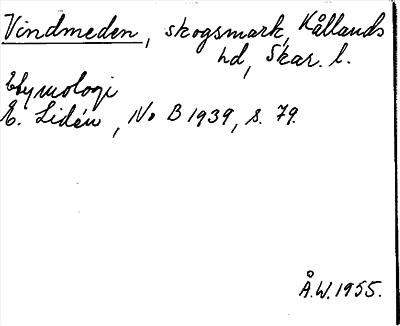 Vindmeden, skogsmark, Kållands
hd, Skar. l.
Etymologi
E. Lidén, No B 1939, s. 79.
Å.W. 1955.